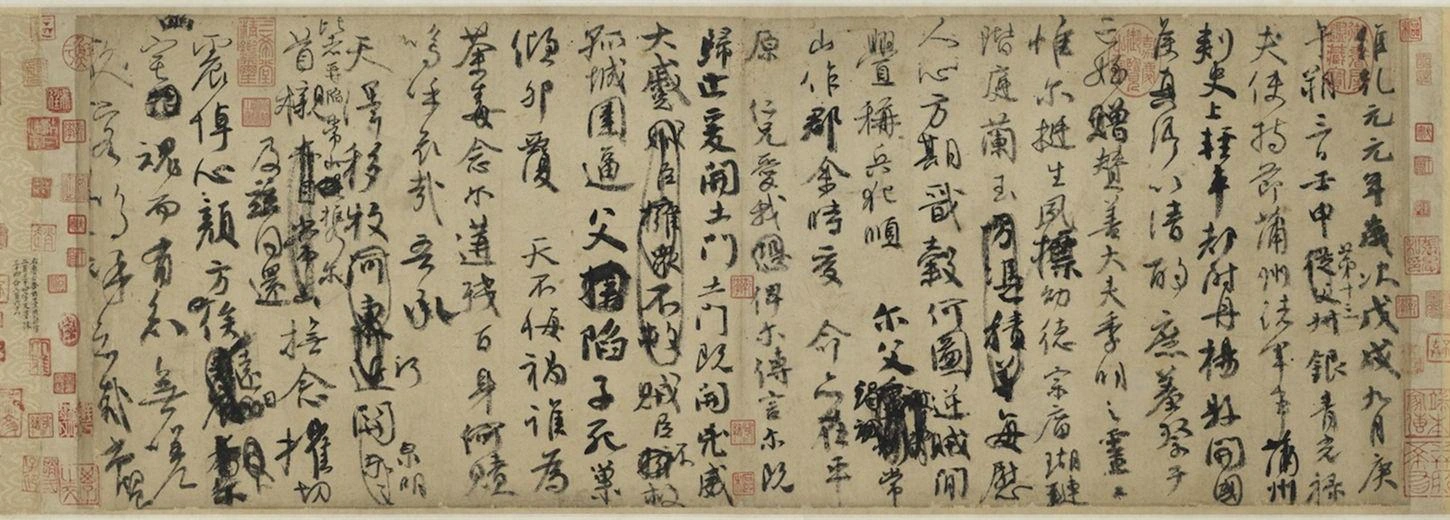 維乾元元年歲次戊戌九月庚
午朔三日壬申第十三叔銀青光祿
夫使持節蒲州諸軍事蒲州
刺史上輕車都尉丹楊縣開國
侯真卿以清酌庶羞祭于
亡姪贈贊善大夫季明之靈曰
惟爾挺生夙標幼德宗廟瑚璉
階庭蘭玉方憑積善每慰
人心方期戩穀何圖逆賊閒
釁稱兵犯順爾父竭誠常
山作郡余時受命亦在平
原仁兄愛我俾爾傳言爾既
歸止爰開土門土門既開兇威
大蹙賊臣擁眾不救賊臣不救
孤城圍逼父陷子死巢
傾卵覆天不悔禍誰為
荼毒念爾遘殘百身何贖
嗚呼哀哉吾承
天澤移牧河關泉明
比者再陷常山攜爾
首櫬及茲同還撫念摧切
震悼心顏方俟遠日
卜爾幽宅魂而有知無嗟
久客嗚呼哀哉尚饗